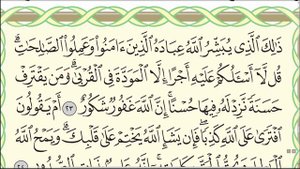 ذَٰلِكَ ٱلَّذِى يُبَشِّرُ ٱللَّهُ عِبَادَهُ ٱلَّذِينَ ءَامَنُوا۟ وَعَمِلُوا۟ ٱلصَّـٰلِحَـٰتِ ۗ
قُل لَّآ أَسْـَٔلُكُمْ عَلَيْهِ أَجْرًا إِلَّا ٱلْمَوَدَّةَ فِى ٱلْقُرْبَىٰ ۗ وَمَن يَقْتَرِفْ
حَسَنَةً نَّزِدْ لَهُۥ فِيهَا حُسْنًا ۚ إِنَّ ٱللَّهَ غَفُورٌ شَكُورٌ ٢٣ أَمْ يَقُولُونَ
ٱفْتَرَىٰ عَلَى ٱللَّهِ كَذِبًا ۖ فَإِن يَشَإِ ٱللَّهُ يَخْتِمْ عَلَىٰ قَلْبِكَ ۗ وَيَمْحُ ٱللَّهُ